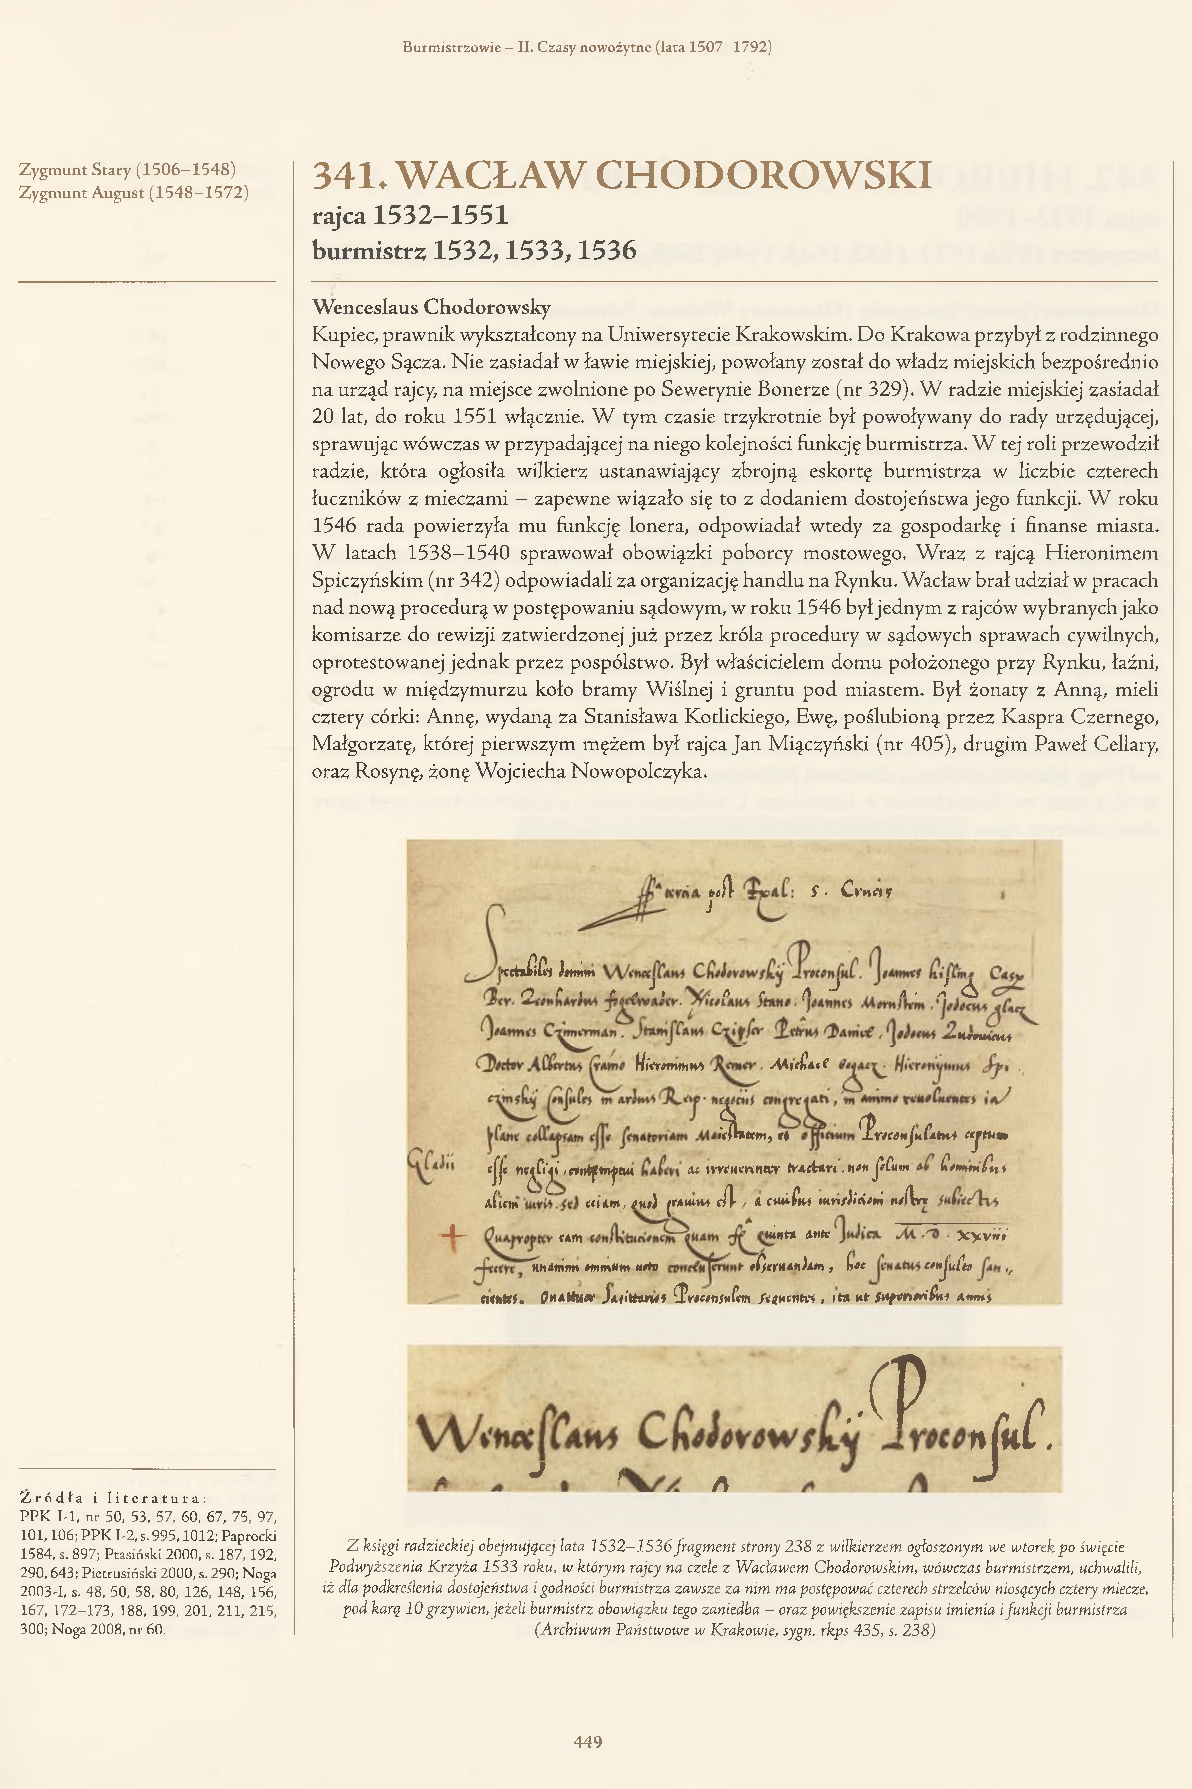 Burmistrzowie – II. Czasy nowożytne (lata 1507–1792)
Zygmunt Stary (1506–1548)
Zygmunt August (1548–1572)
341. WACŁAW CHODOROWSKI
rajca 1532–1551
burmistrz 1532, 1533, 1536
Wenceslaus Chodorowsky
Kupiec, prawnik wykształcony na Uniwersytecie Krakowskim. Do Krakowa przybył z rodzinnego
Nowego Sącza. Nie zasiadał w ławie miejskiej, powołany został do władz miejskich bezpośrednio
na urząd rajcy, na miejsce zwolnione po Sewerynie Bonerze (nr 329). W radzie miejskiej zasiadał
20 lat, do roku 1551 włącznie. W tym czasie trzykrotnie był powoływany do rady urzędującej,
sprawując wówczas w przypadającej na niego kolejności funkcję burmistrza. W tej roli przewodził
radzie, która ogłosiła wilkierz ustanawiający zbrojną eskortę burmistrza w liczbie czterech
łuczników z mieczami – zapewne wiązało się to z dodaniem dostojeństwa jego funkcji. W roku
1546 rada powierzyła mu funkcję lonera, odpowiadał wtedy za gospodarkę i finanse miasta.
W latach 1538–1540 sprawował obowiązki poborcy mostowego. Wraz z rajcą Hieronimem
Spiczyńskim (nr 342) odpowiadali za organizację handlu na Rynku. Wacław brał udział w pracach
nad nową procedurą w postępowaniu sądowym, w roku 1546 był jednym z rajców wybranych jako
komisarze do rewizji zatwierdzonej już przez króla procedury w sądowych sprawach cywilnych,
oprotestowanej jednak przez pospólstwo. Był właścicielem domu położonego przy Rynku, łaźni,
ogrodu w międzymurzu koło bramy Wiślnej i gruntu pod miastem. Był żonaty z Anną, mieli
cztery córki: Annę, wydaną za Stanisława Kotlickiego, Ewę, poślubioną przez Kaspra Czernego,
Małgorzatę, której pierwszym mężem był rajca Jan Miączyński (nr 405), drugim Paweł Cellary,
oraz Rosynę, żonę Wojciecha Nowopolczyka.
post Exal: S. Crucis
Spectabiles domini Wenceslaus Chodorowsky Proconsul. Joannes
Nicolaus Joannes Mornstein. Jodocus
Joannes Czimerman. Stanislaus Petrus Daniel, Jodocus
Doctor Albertus Hieronimus Michael Hieronymus Spi
czinsky Consules in arduis Reip. negociis congregati, in animo
collapsam esse senatoriam Maiestatem, et officium Proconsulatus
Gladii
esse negligi, haberi ac irreverenter tractari, non solum ab hominibus
alieni iuris, sed eciam, quod gravius est, a
Quapropter eam constitucionem quam quinta ante Judica M.D. XXVIII
fecere, unanimi omnium voto observandam, hoc senatus consulto san
Quattuor Sagittarios Proconsulem sequentes, ita ut superioribus annis
Wenceslaus Chodorowsky Proconsul.
Źródła i literatura:
PPK I-1, nr 50, 53, 57, 60, 67, 75, 97,
101, 106; PPK I-2, s. 995, 1012; Paprocki
1584, s. 897; Ptasiński 2000, s. 187, 192,
290, 643; Pietrusiński 2000, s. 290; Noga
2003-I, s. 48, 50, 58, 80, 126, 148, 156,
167, 172–173, 188, 199, 201, 211, 215,
300; Noga 2008, nr 60.
Z księgi radzieckiej obejmującej lata 1532–1536 fragment strony 238 z wilkierzem ogłoszonym we wtorek po święcie
Podwyższenia Krzyża 1533 roku, w którym rajcy na czele z Wacławem Chodorowskim, wówczas burmistrzem, uchwalili,
iż dla podkreślenia dostojeństwa i godności burmistrza zawsze za nim ma postępować czterech strzelców niosących cztery miecze,
pod karą 10 grzywien, jeżeli burmistrz obowiązku tego zaniedba – oraz powiększenie zapisu imienia i funkcji burmistrza
(Archiwum Państwowe w Krakowie, sygn. rkps 435, s. 238)
449